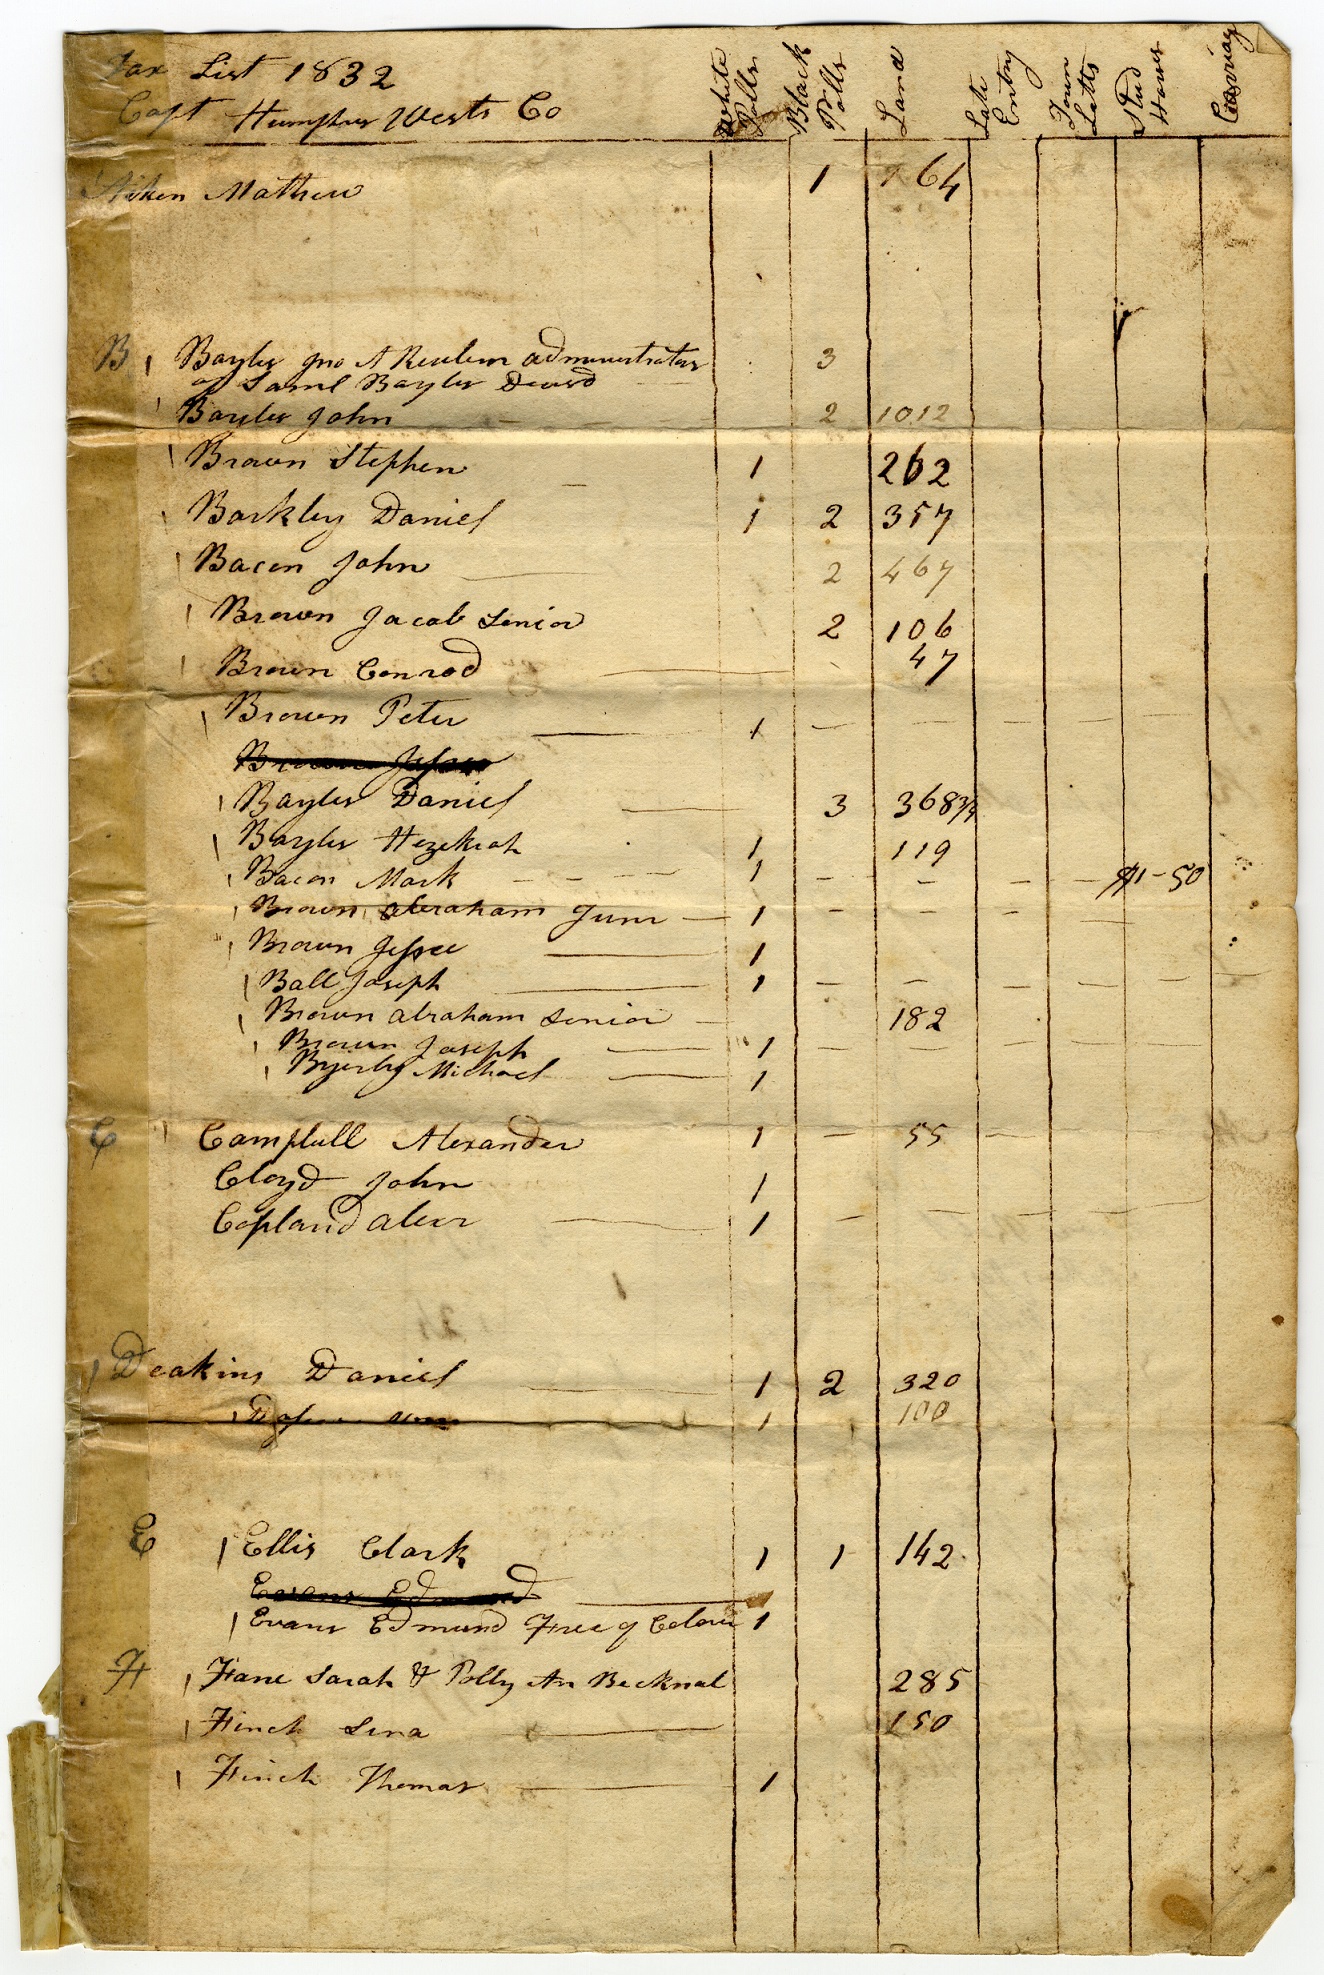 Tax List 1832
Capt Humphrey Wests Co
White Polls Black Polls Land Late Entry Town Lotts Stud Horses Carriag
Aiken Mathew 1 164
B Bayles Jno & Reuben administrators 3
of Saml Bayles Decesd
Bayles John 2 1012
Brown Stephen 1 262
Barkley Daniel 1 2 357
Bacon John 2 467
Brown Jacob Senior 2 106
Brown Conrod 47
Brown Peter 1
Brown Jesse
Bayles Daniel 3 368 3/4
Bayles Hezekiah 1 119
Bacon Mark 1 $1-50
Brown Abraham Junr 1
Brown Jessee 1
Ball Joseph 1
Brown Abraham Senior 182
Brown Joseph 1
Byerley Michael 1
C Campbell Alexander 1 55
Cloyd John 1
Copland Alexr 1
Deakins Daniel 1 2 320
1 100
E Ellis Clark 1 1 142
Evans Edmund
Evans Edmund Free of Colour 1
F Fane Sarah & Polly An Becknal 285
Finch Sena 150
Finch Thomas 1